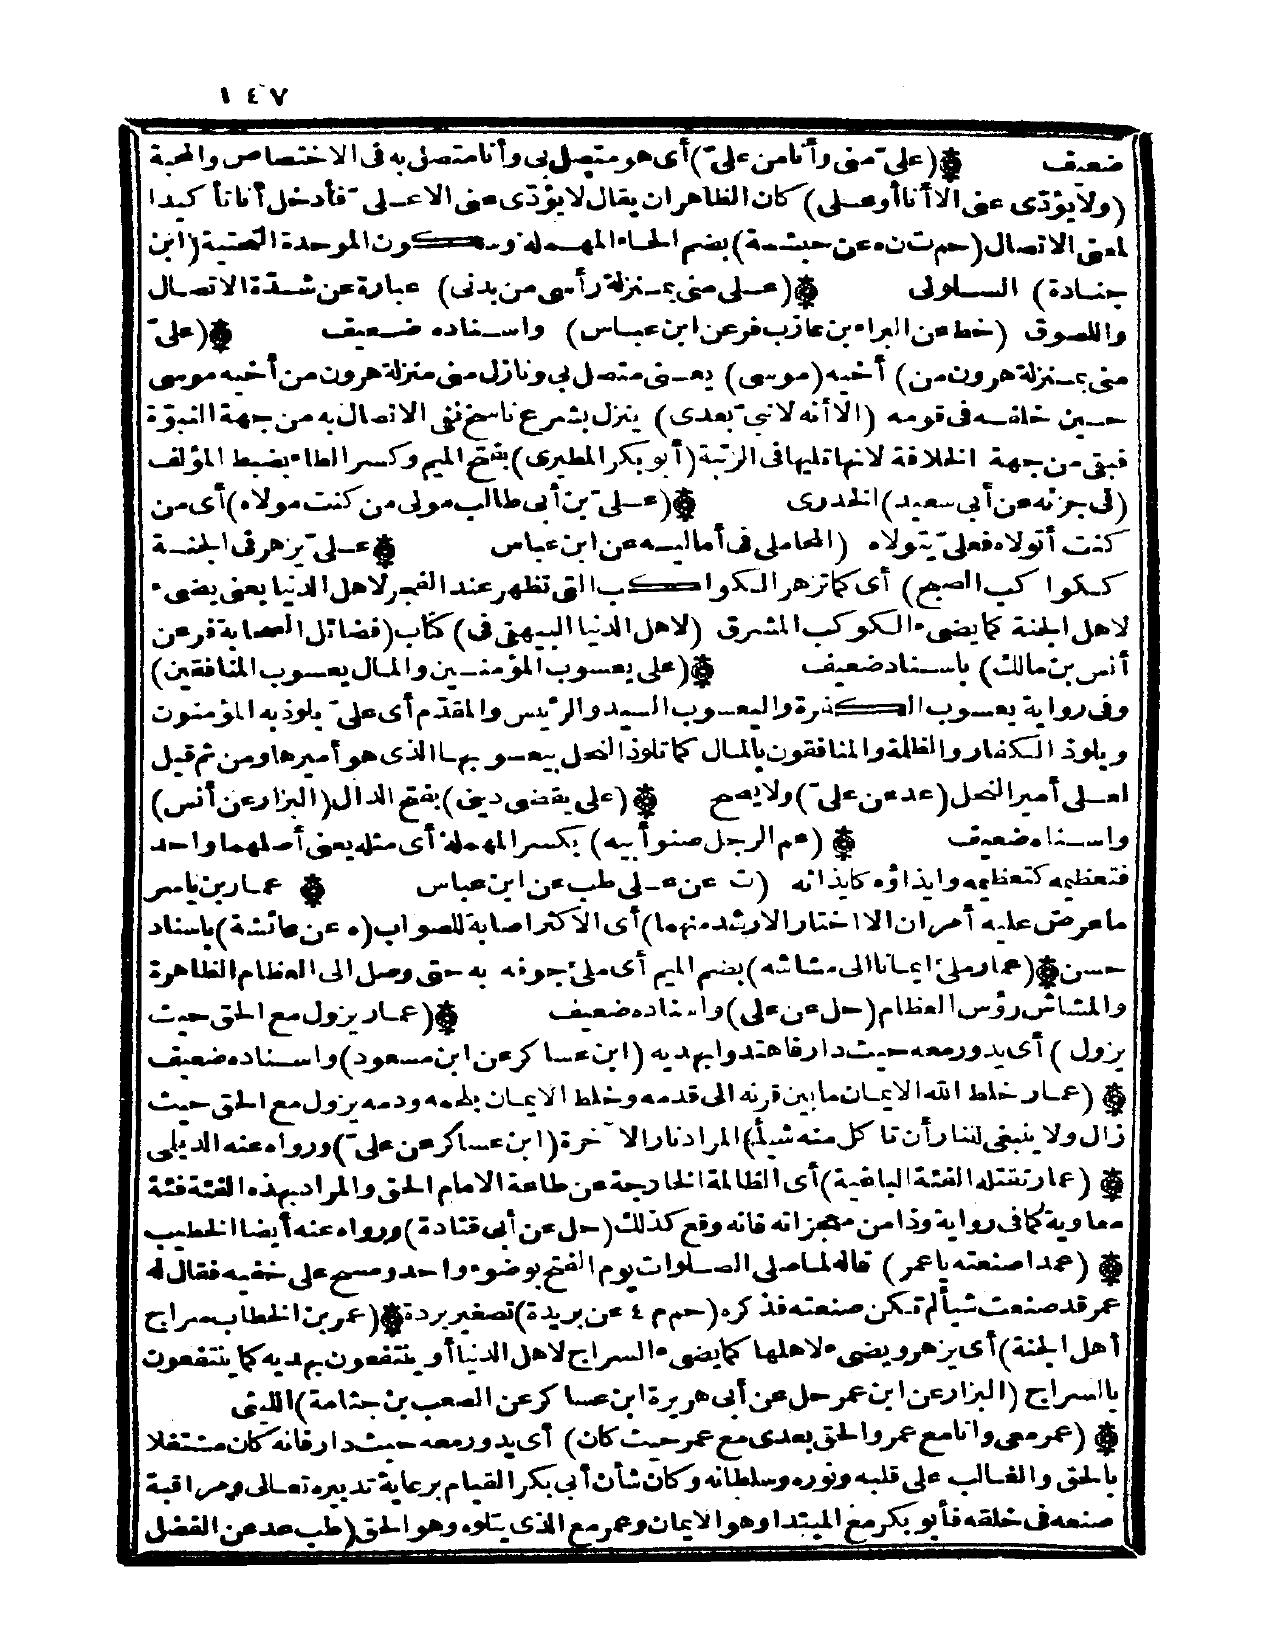 ١٤٧
ضعيف ۞ (علىّ منى وأنا من علىّ) أى هو متصل بى وأنا متصل به فى الاختصاص والمحبة
(ولا يؤدّى عنى الا أنا أو على) كان الظاهر ان يقال لا يؤدّى عنى الا علىّ فأدخل أنا تأكيدا
لمعنى الاتصال (حم ت ن ه عن حبشة) بضم الحاء المهملة وسكون الموحدة التحتية (ابن
جنادة) السلولى ۞ (على منى بمنزلة رأسى من بدنى) عبارة عن شدّة الاتصال
واللصوق (خط عن البراء بن عازب فر عن ابن عباس) واسناده ضعيف ۞ (علىّ
منى بمنزلة هرون من) أخيه (موسى) يعنى متصل بى ونازل منى منزلة هرون من أخيه موسى
حين خلفه فى قومه (الا أنه لا نبىّ بعدى) ينزل بشرع ناسخ نفى الاتصال به من جهة النبوّة
فبقى من جهة الخلافة لانها تليها فى الرتبة (أبو بكر المطيرى) بفتح الميم وكسر الطاء بضبط المؤلف
(فى جزئه عن أبى سعيد) الخدرى ۞ (علىّ بن أبى طالب مولى من كنت مولاه) أى من
كنت أتولاه فعلىّ يتولاه (المحاملى فى أماليه عن ابن عباس ۞ علىّ يزهر فى الجنة
ككوا كب الصبح) أى كما تزهر الكواكب التى تظهر عند الفجر لاهل الدنيا يعنى يضىء
لاهل الجنة كما يضىء الكوكب المشرق (لاهل الدنيا البيهقى فى) كتاب (فضائل الصحابة فر عن
أنس بن مالك) باسناد ضعيف ۞ (على يعسوب المؤمنين والمال يعسوب المنافقين)
وفى رواية يعسوب الكفرة واليعسوب السيد والرئيس والمقدّم أى علىّ يلوذ به المؤمنون
ويلوذ الكفار والظلمة والمنافقون بالمال كما تلوذ النحل بيعسوبها الذى هو أميرها ومن ثم قيل
لعلى أمير النحل (عد عن علىّ) ولا يصح ۞ (على يقضى دينى) بفتح الدال (البزار عن أنس)
واسناده ضعيف ۞ (عم الرجل صنو أبيه) بكسر المهملة أى مثله يعنى أصلهما واحد
فتعظيمه كتعظيمه وايذاؤه كايذائه (ت عن على طب عن ابن عباس ۞ عمار بن ياسر
ما عرض عليه أمر ان الا اختار الارشد منهما) أى الاكثر اصابة للصواب (ه عن عائشة) باسناد
حسن ۞ (عمار ملئ ايمانا الى مشاشه) بضم الميم أى ملئ جوفه به حتى وصل الى العظام الظاهرة
والمشاش رؤس العظام (حل عن على) واسناده ضعيف ۞ (عمار يزول مع الحق حيث
يزول) أى يدور معه حيث دار فاهتدوا بهديه (ابن عساكر عن ابن مسعود) واسناده ضعيف
۞ (عمار خلط الله الايمان ما بين قرنه الى قدمه وخلط الايمان بلحمه ودمه يزول مع الحق حيث
زال ولا ينبغى للنار أن تأكل منه شيأ) المراد نار الآخرة (ابن عساكر عن علىّ) ورواه عنه الديلى
۞ (عمار تقتله الفئة الباغية) أى الظالمة الخارجة عن طاعة الامام الحق والمراد بهذه الفئة فئة
معاوية كما فى رواية وذا من معجزاته فانه وقع كذلك (حل عن أبى قتادة) ورواه عنه أيضا الخطيب
۞ (عمدا صنعته يا عمر) قاله لما صلى الصلوات يوم الفتح بوضوء واحد ومسح على خفيه فقال له
عمر قد صنعت شيأ لم تكن صنعته فذكره (حم م ٤ عن بريدة) تصغير بردة ۞ (عمر بن الخطاب سراج
أهل الجنة) أى يزهر ويضىء لاهلها كما يضىء السراج لاهل الدنيا أو ينتفعون بهديه كما ينتفعون
بالسراج (البزار عن ابن عمر حل عن أبى هريرة ابن عساكر عن الصعب بن جثامة) الليثى
۞ (عمر معى وانا مع عمر والحق بعدى مع عمر حيث كان) أى يدور معه حيث دار فانه كان مشتغلا
بالحق والغالب على قلبه ونوره وسلطانه وكان شأن أبى بكر القيام برعاية تدبيره تعالى ومراقبة
صنعه فى خلقه فأبو بكر مع المبتدا وهو الايمان وعمر مع الذى يتلوه وهو الحق (طب عد عن الفضل